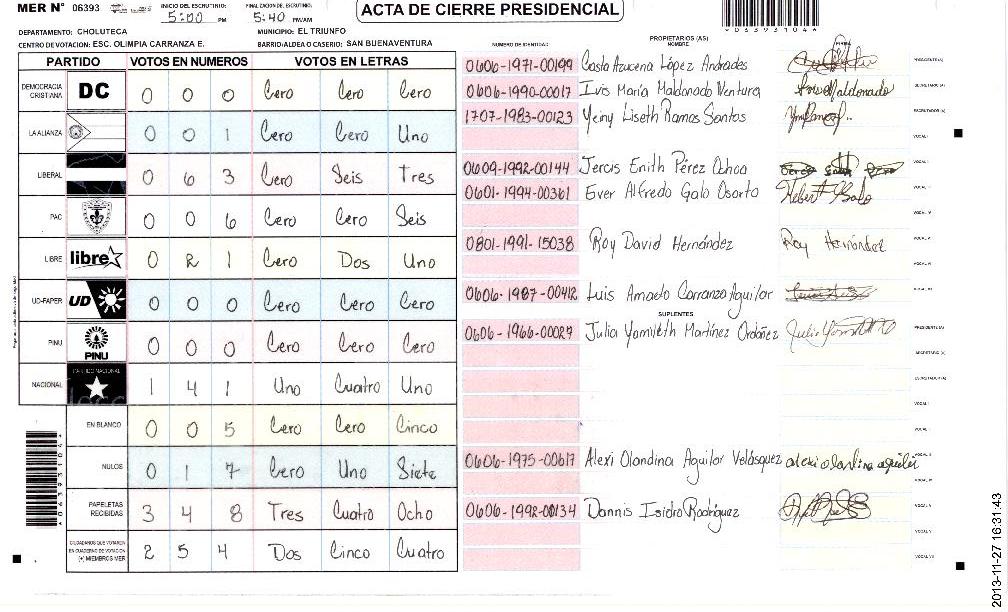 MER N° 06393
INICIO DEL ESCRUTINIO: 5:00 PM
FINALIZACION DEL ESCRUTINIO: 5:40 PM/AM
ACTA DE CIERRE PRESIDENCIAL
DEPARTAMENTO: CHOLUTECA
MUNICIPIO: EL TRIUNFO
CENTRO DE VOTACION: ESC. OLIMPIA CARRANZA E.
BARRIO/ALDEA O CASERIO: SAN BUENAVENTURA
PARTIDO VOTOS EN NUMEROS VOTOS EN LETRAS
DEMOCRACIA CRISTIANA DC 0 0 0 Cero Cero Cero
LA ALIANZA 0 0 1 Cero Cero Uno
LIBERAL 0 6 3 Cero Seis Tres
PAC 0 0 6 Cero Cero Seis
LIBRE libre 0 2 1 Cero Dos Uno
UD-FAPER UD 0 0 0 Cero Cero Cero
PINU PINU 0 0 0 Cero Cero Cero
NACIONAL PARTIDO NACIONAL 1 4 1 Uno Cuatro Uno
EN BLANCO 0 0 5 Cero Cero Cinco
NULOS 0 1 7 Cero Uno Siete
PAPELETAS RECIBIDAS 3 4 8 Tres Cuatro Ocho
CIUDADANOS QUE VOTARON EN CUADERNO DE VOTACION (+) MIEMBROS MER 2 5 4 Dos Cinco Cuatro
NUMERO DE IDENTIDAD
PROPIETARIOS (AS)
NOMBRE
FIRMA
0606-1971-00199 Casta Azucena López Andrades PRESIDENTE(A)
0606-1990-00017 Ivis María Maldonado Ventura SECRETARIO (A)
1707-1983-00123 Yeiny Liseth Ramos Santos ESCRUTADOR (A)
VOCAL I
0609-1992-00144 Jercis Enith Pérez Ochoa
0601-1994-00361 Ever Alfredo Galo Osorto
0801-1991-15038 Roy David Hernández Roy Hernández
0606-1987-00412 Luis Amado Carranza Aguilar
SUPLENTES
0606-1966-00027 Julia Yamileth Martínez Ordóñez PRESIDENTE(A)
SECRETARIO (A)
ESCRUTADOR(A)
VOCAL I
0606-1975-00617 Alexi Olandina Aguilar Velásquez alexi olandina aguilar
0606-1992-00134 Dannis Isidro Rodríguez
2013-11-27 16:31:43